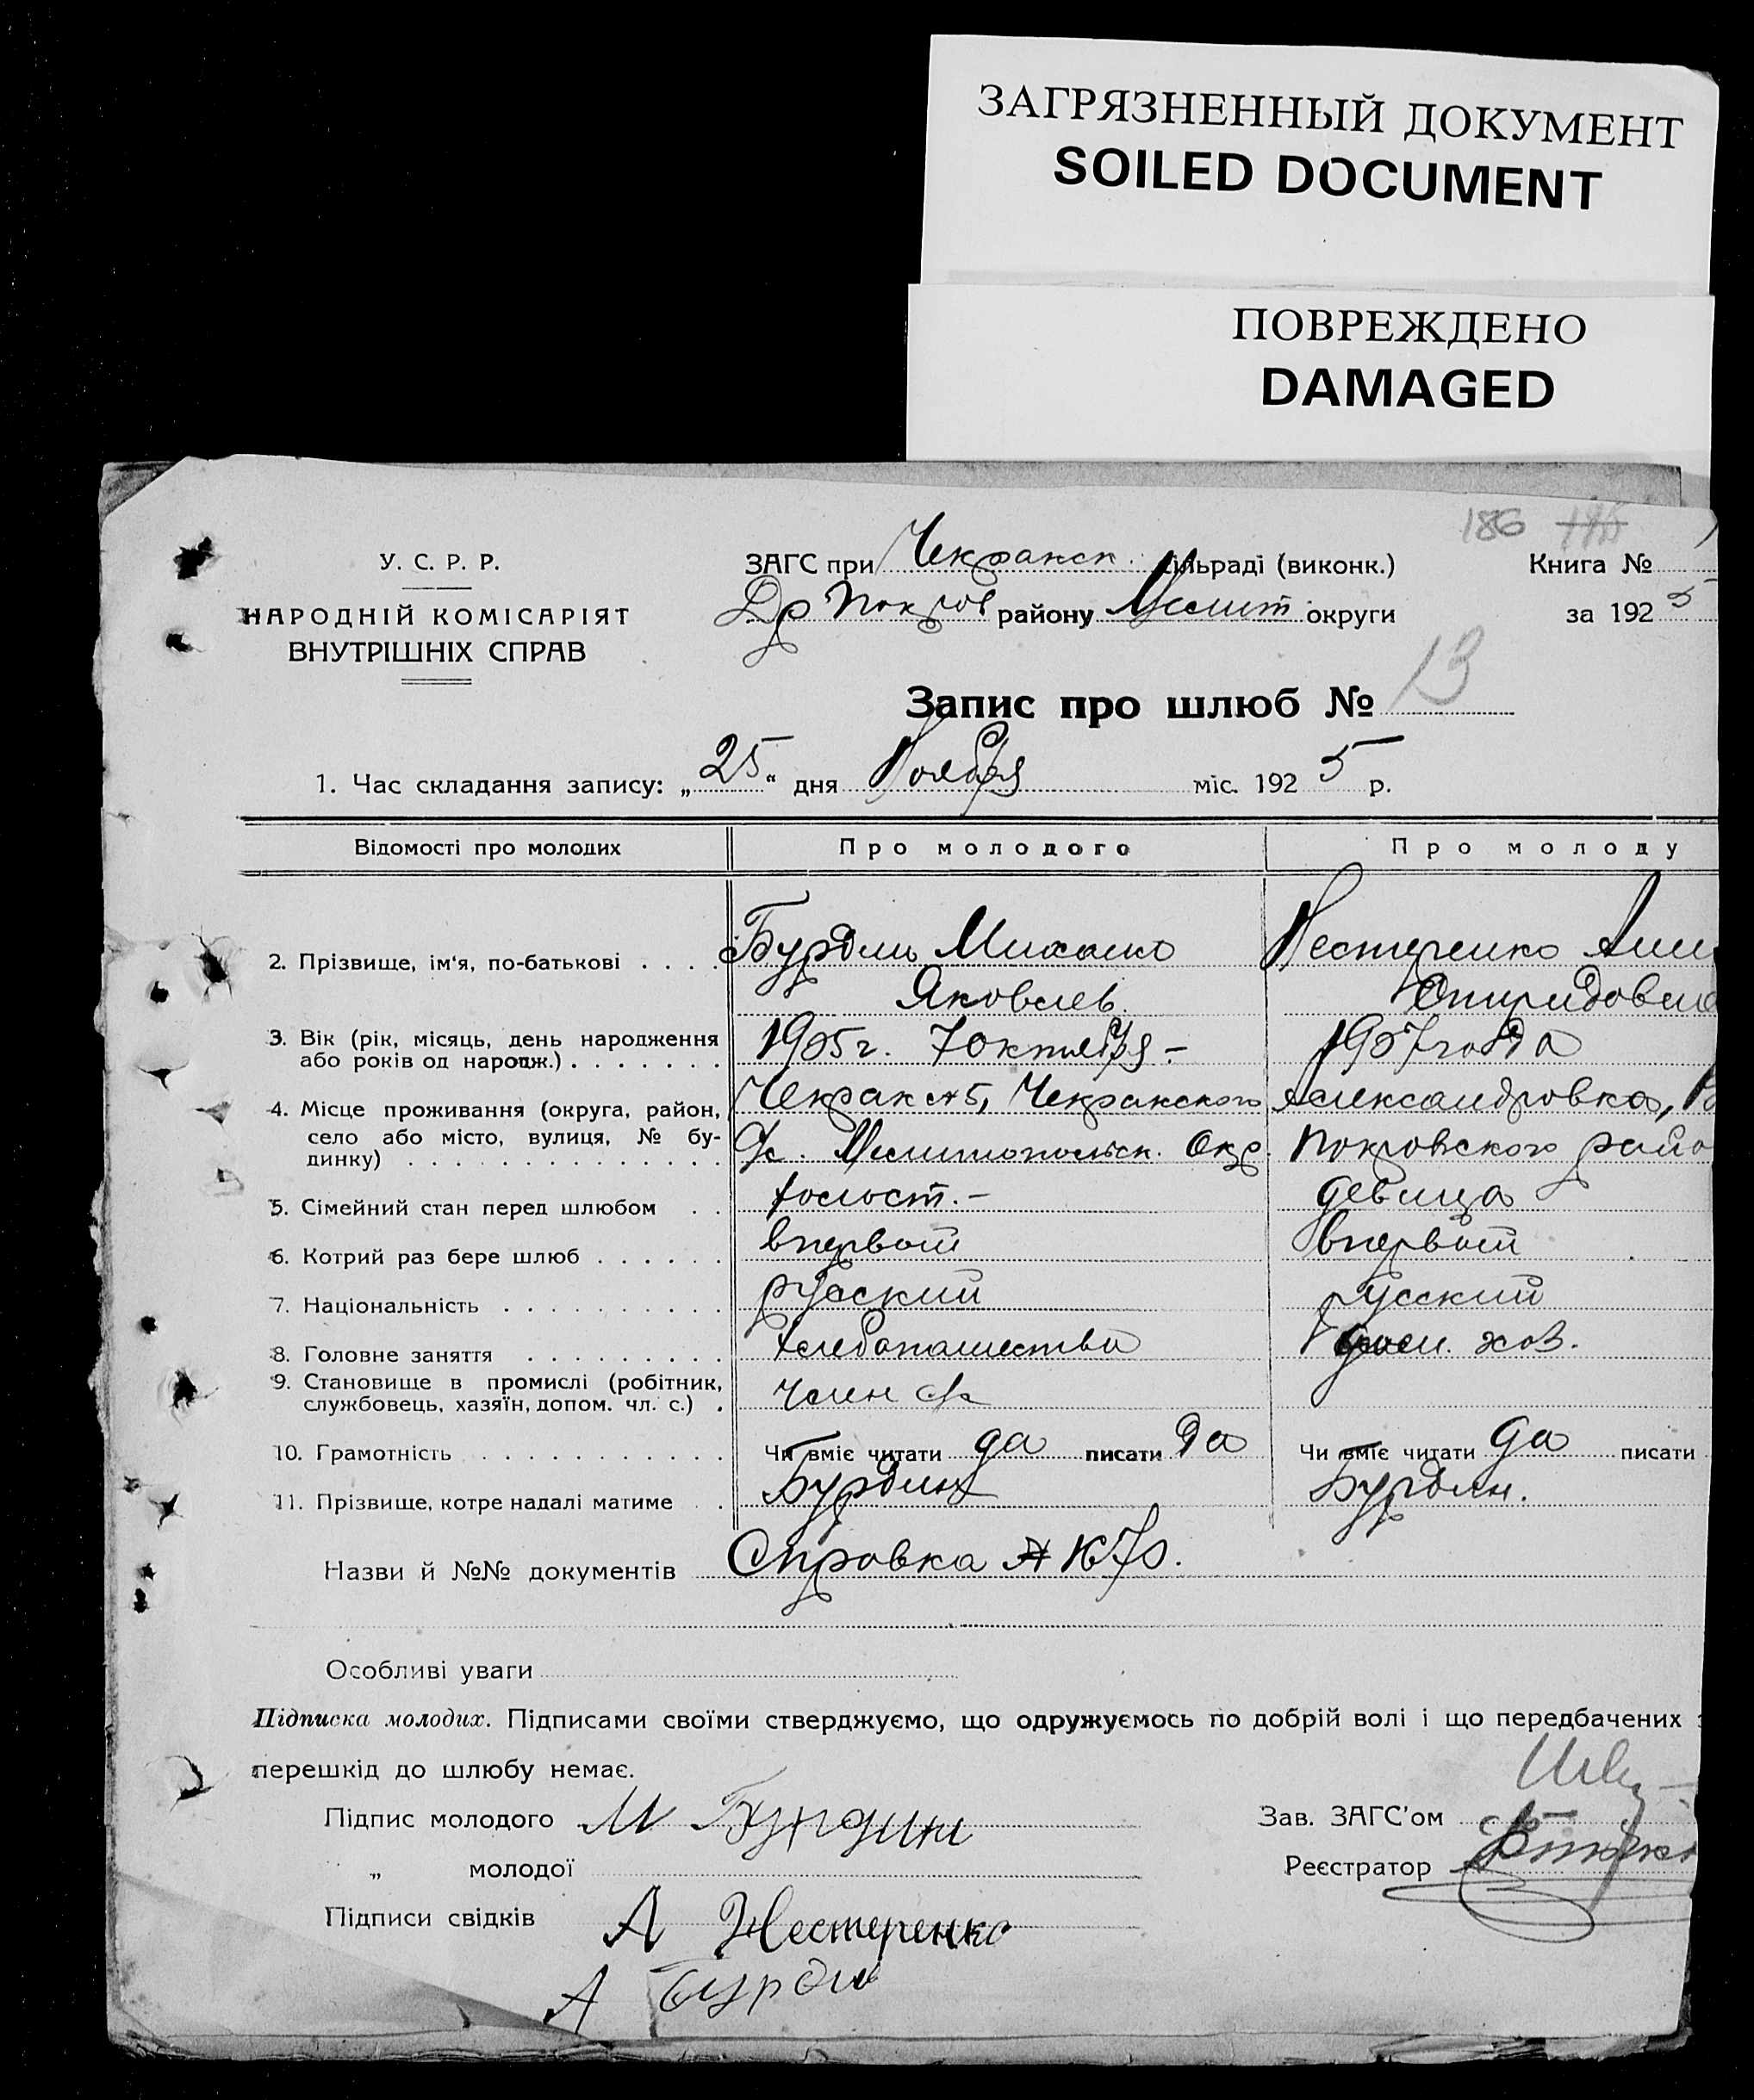 ЗАГРЯЗНЕННЫЙ ДОКУМЕНТ
SOILED DOCUMENT
ПОВРЕЖДЕНО
DAMAGED
186
У. С. Р. Р.
НАРОДНІЙ КОМІСАРІЯТ
ВНУТРІШНІХ СПРАВ
ЗАГС при Чекракск. сільраді (виконк.)
Книга №
Др Покров району Мелит. округи
за 1925
Запис про шлюб № 13
1. Час складання запису: „25“ дня Ноября міс. 1925 р.
Відомості про молодих
Про молодого
Про молоду
2. Прізвище, ім'я, по-батькові . . . .
Бурдин Михаил
Яковлев.
Нестеренко
Спиридовна
3. Вік (рік, місяць, день народження
або років од народж.) . . . . . . .
1905 г. 7 октября –
1907 года
4. Місце проживання (округа, район,
село або місто, вулиця, № бу-
динку) . . . . . . . . . . . . . .
Чекрак №5, Чекракского
с/с. Мелитопольск. Окр.
Александровка,
Покровского райо
5. Сімейний стан перед шлюбом . .
холост. –
девица
6. Котрий раз бере шлюб . . . . . .
впервой
впервой
7. Національність . . . . . . . . . .
русский
русский
8. Головне заняття . . . . . . . . .
хлебопашество
хоз.
9. Становище в промислі (робітник,
службовець, хазяїн, допом. чл. с.) .
член с/х
10. Грамотність . . . . . . . . . . . .
Чи вміє читати да писати да
Чи вміє читати да писати
11. Прізвище, котре надалі матиме . .
Бурдин
Бурдин.
Назви й №№ документів Справка
Особливі уваги
Підписка молодих. Підписами своїми стверджуємо, що одружуємось по добрій волі і що передбачених з
перешкід до шлюбу немає.
Підпис молодого М Бурдин
„ молодої
Підписи свідків А Нестеренко
А Бурди
Зав. ЗАГС'ом
Реєстратор